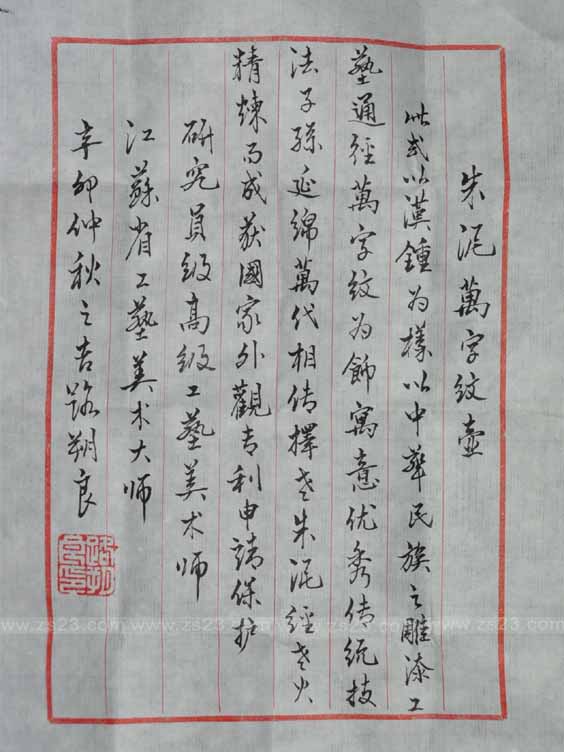 朱泥萬字紋壺
此式以漢鍾为樣以中華民族之雕漆工
藝通經萬字紋为飾寓意优秀传统技
法子孫延綿萬代相传擇老朱泥經老火
精煉而成获國家外觀专利申請保护
研究員级高级工藝美术师
江蘇省工藝美术大师
辛卯仲秋之吉路朔良
www.zs23.com www.zs23.com www.zs23.com